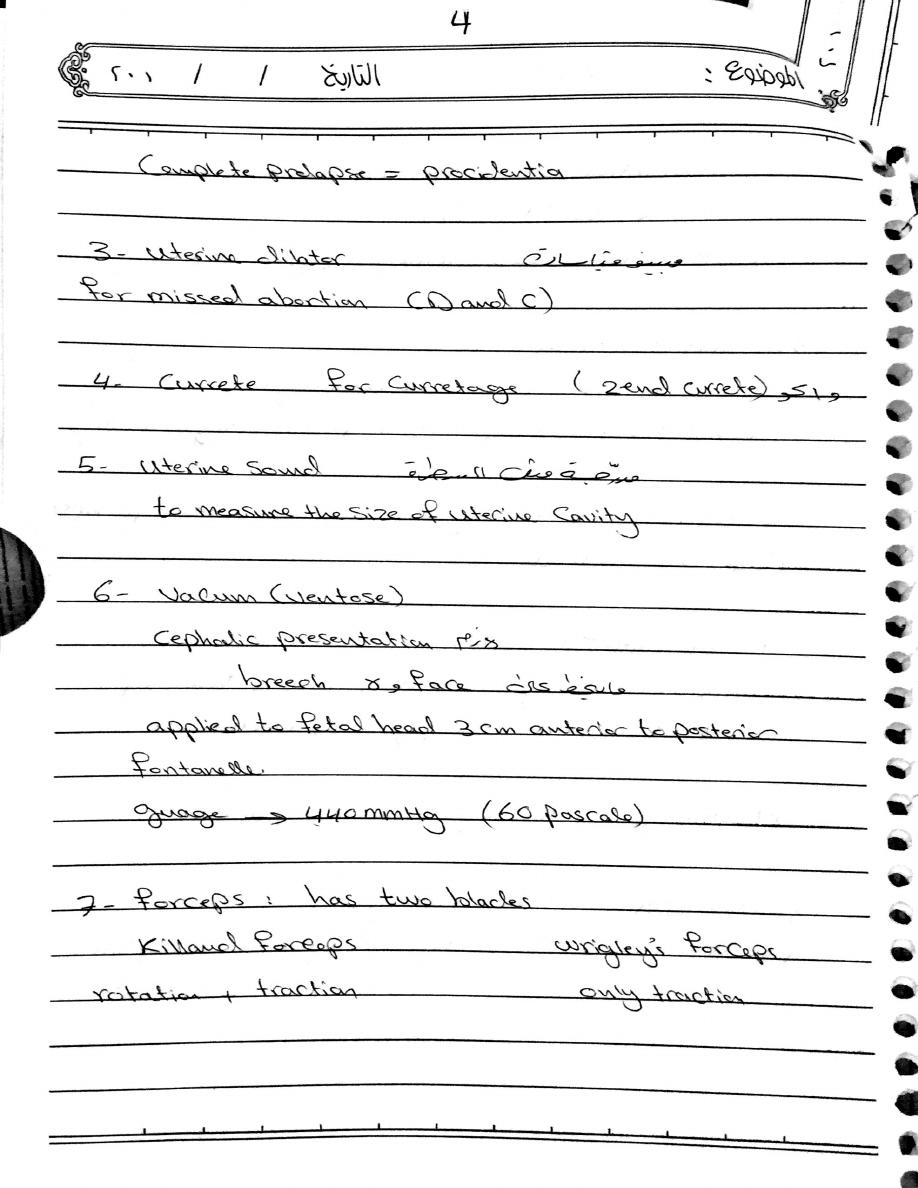 4
الموضوع : التاريخ / / ٢٠١
Complete prolapse = procidentia
3- Uterine dilator قياسات
for missed abortion (D and C)
4- Currete for Curretage (2 end currete)
5- Uterine Sound مدرجة مثل المسطرة
to measure the size of uterine Cavity
6- Vacum (ventose)
Cephalic presentation لازم
breech و لا face
applied to fetal head 3 cm anterior to posterior
fontanelle.
guage → 440 mmHg (60 pascale)
7- forceps : has two blades
Killand forceps wrigley's forceps
rotation + traction only traction